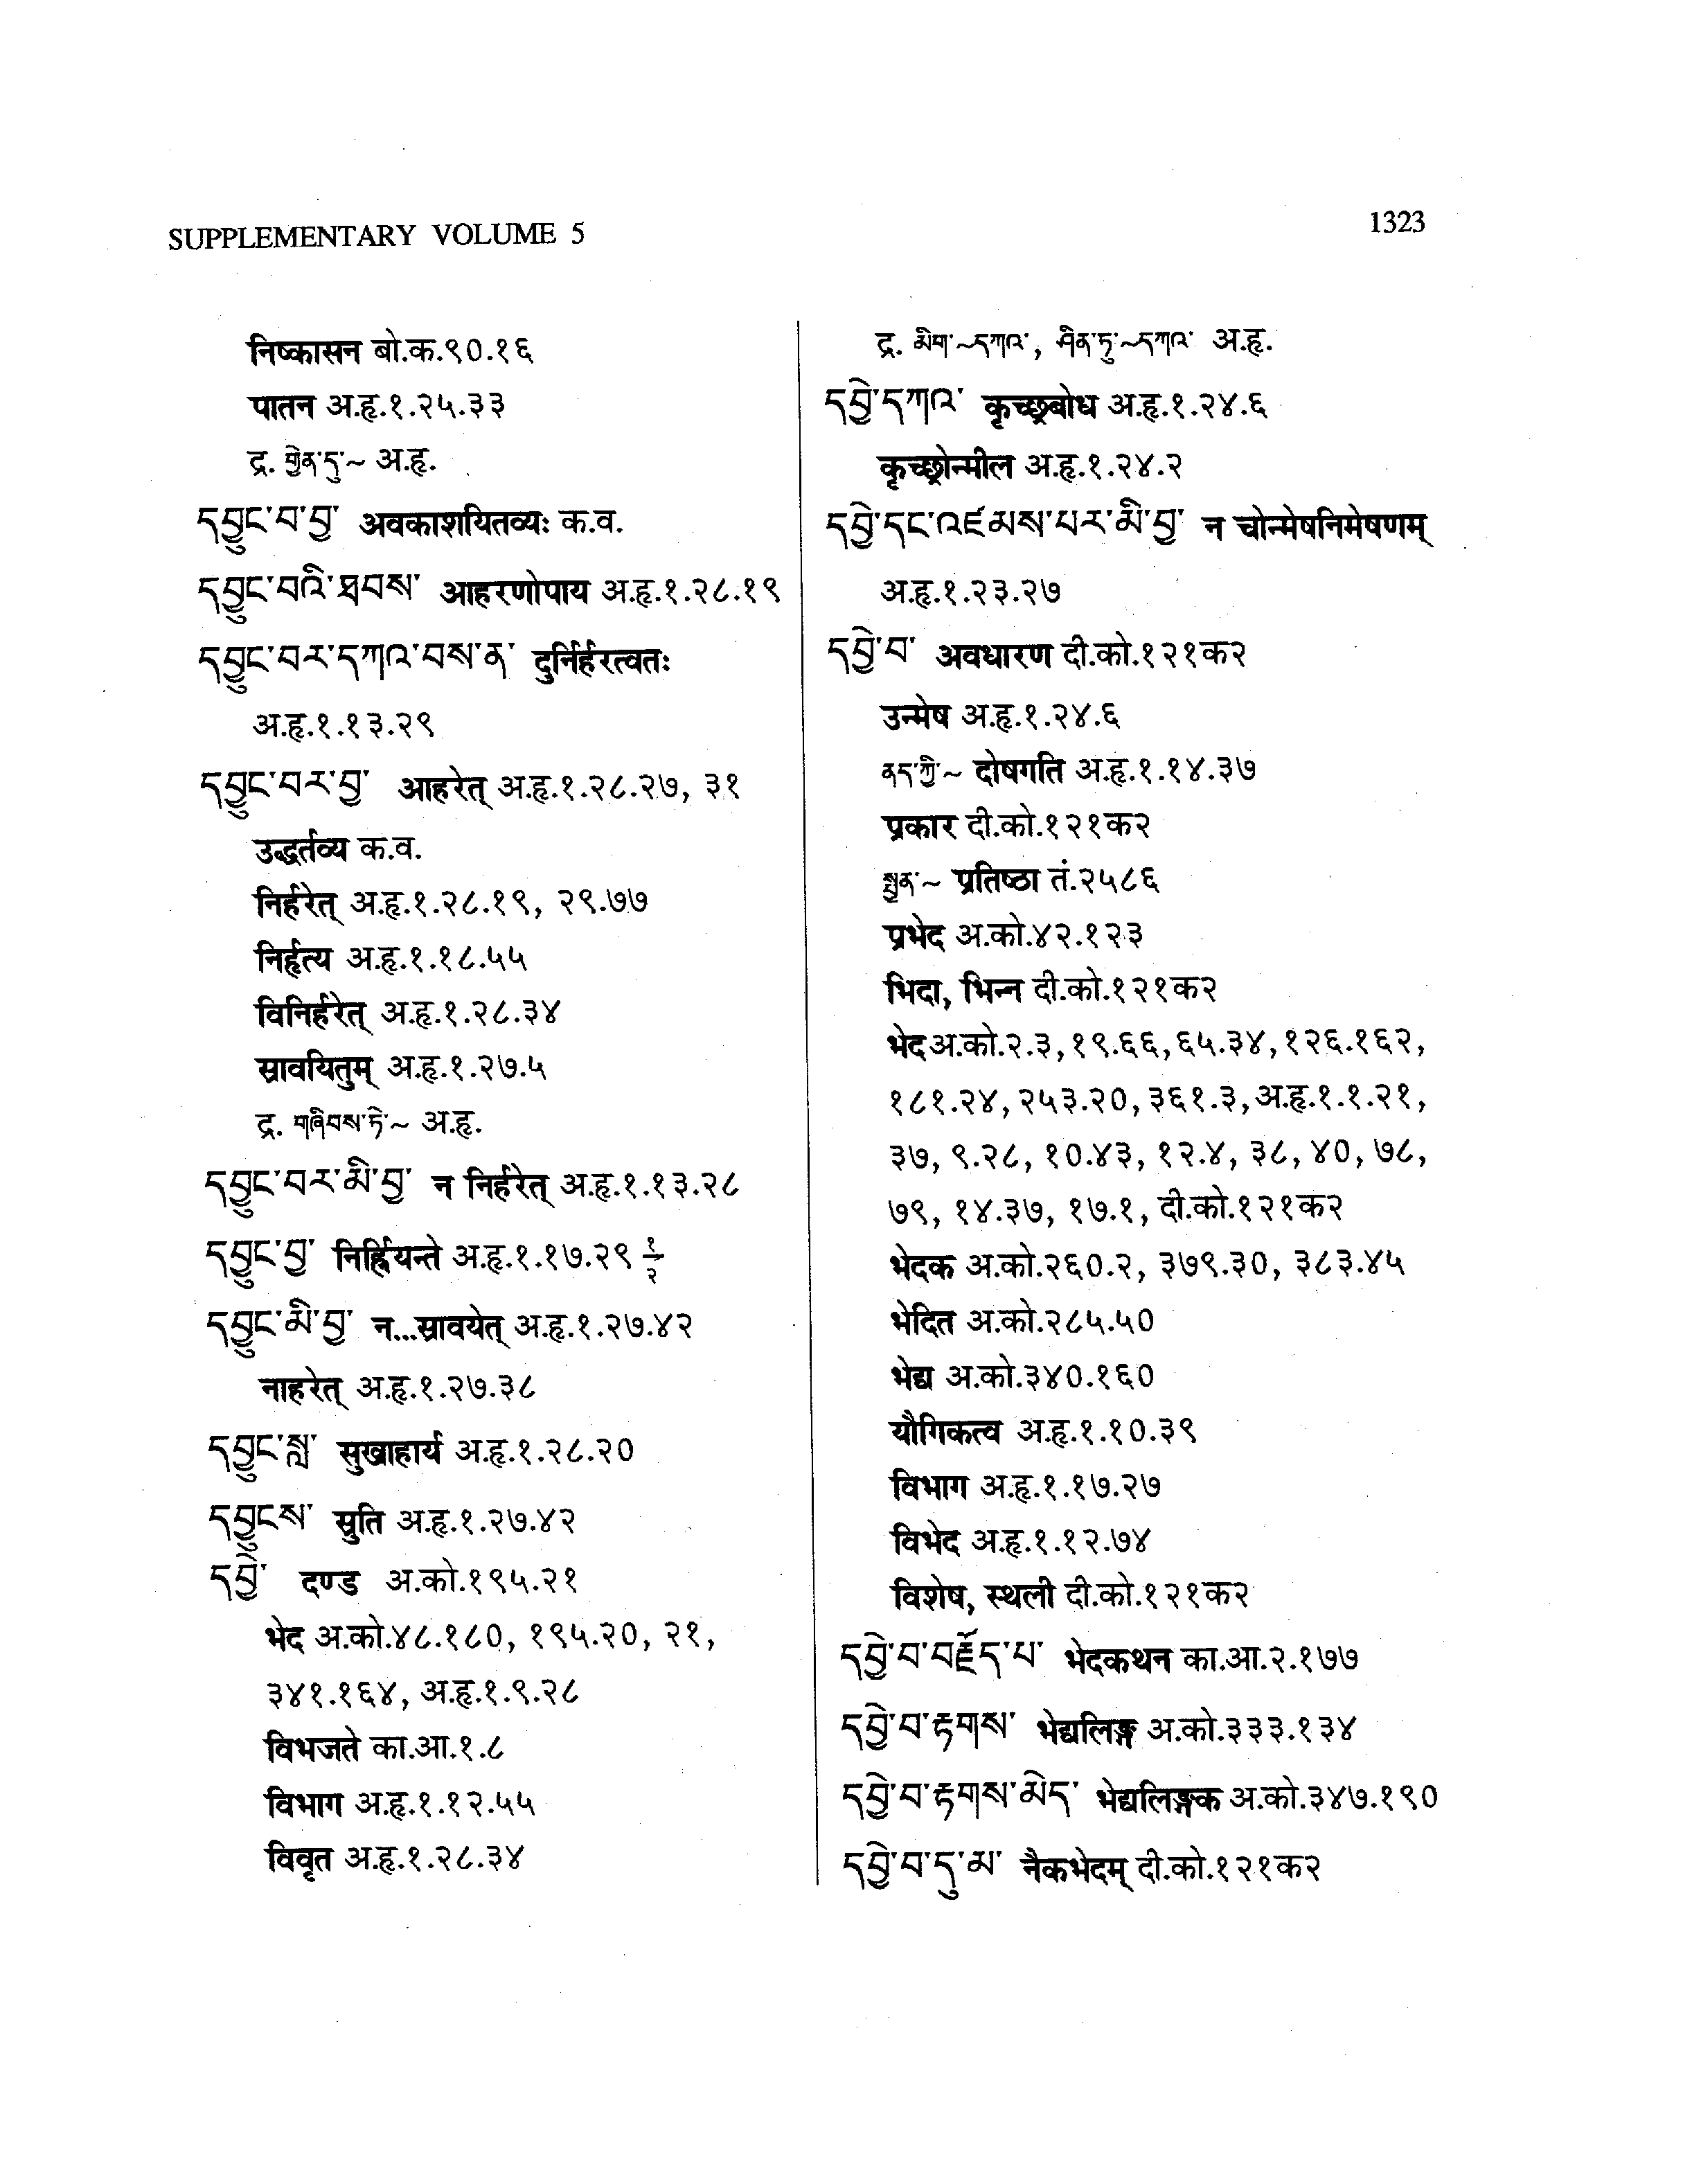 SUPPLEMENTARY VOLUME 5
1323
निष्कासन बो.क.९०.१६
पातन अ.हृ.१.२५.३३
द्र. གྱེན་དུ་~ अ.हृ.
དབྱུང་བ་བྱ་ अवकाशयितव्यः क.व.
དབྱུང་བའི་ཐབས་ आहरणोपाय अ.हृ.१.२८.१९
དབྱུང་བར་དཀའ་བས་ན་ दुर्निर्हरत्वतः
अ.हृ.१.१३.२९
དབྱུང་བར་བྱ་ आहरेत् अ.हृ.१.२८.२७, ३१
उद्धर्तव्य क.व.
निर्हरेत् अ.हृ.१.२८.१९, २९.७७
निर्हृत्य अ.हृ.१.१८.५५
विनिर्हरेत् अ.हृ.१.२८.३४
स्रावयितुम् अ.हृ.१.२७.५
द्र. གཞིབས་ཏེ་~ अ.हृ.
དབྱུང་བར་མི་བྱ་ न निर्हरेत् अ.हृ.१.१३.२८
དབྱུང་བྱ་ निर्ह्रियन्ते अ.हृ.१.१७.२९ १/२
དབྱུང་མི་བྱ་ न...स्रावयेत् अ.हृ.१.२७.४२
नाहरेत् अ.हृ.१.२७.३८
དབྱུང་སླ་ सुखाहार्य अ.हृ.१.२८.२०
དབྱུངས་ स्रुति अ.हृ.१.२७.४२
དབྱེ་ दण्ड अ.को.१९५.२१
भेद अ.को.४८.१८०, १९५.२०, २१,
३४१.१६४, अ.हृ.१.९.२८
विभजते का.आ.१.८
विभाग अ.हृ.१.१२.५५
विवृत अ.हृ.१.२८.३४
द्र. མིག་~དཀའ་, ཤིན་ཏུ་~དཀའ་ अ.हृ.
དབྱེ་དཀའ་ कृच्छ्रबोध अ.हृ.१.२४.६
कृच्छ्रोन्मील अ.हृ.१.२४.२
དབྱེ་དང་འཛམས་པར་མི་བྱ་ न चोन्मेषनिमेषणम्
अ.हृ.१.२३.२७
དབྱེ་བ་ अवधारण दी.को.१२१क२
उन्मेष अ.हृ.१.२४.६
ནད་ཀྱི་~ दोषगति अ.हृ.१.१४.३७
प्रकार दी.को.१२१क२
སྤྱན་~ प्रतिष्ठा तं.२५८६
प्रभेद अ.को.४२.१२३
भिदा, भिन्न दी.को.१२१क२
भेद अ.को.२.३, १९.६६, ६५.३४, १२६.१६२,
१८१.२४, २५३.२०, ३६१.३, अ.हृ.१.१.२१,
३७, ९.२८, १०.४३, १२.४, ३८, ४०, ७८,
७९, १४.३७, १७.१, दी.को.१२१क२
भेदक अ.को.२६०.२, ३७९.३०, ३८३.४५
भेदित अ.को.२८५.५०
भेद्य अ.को.३४०.१६०
यौगिकत्व अ.हृ.१.१०.३९
विभाग अ.हृ.१.१७.२७
विभेद अ.हृ.१.१२.७४
विशेष, स्थली दी.को.१२१क२
དབྱེ་བ་བརྗོད་པ་ भेदकथन का.आ.२.१७७
དབྱེ་བ་རྟགས་ भेद्यलिङ्ग अ.को.३३३.१३४
དབྱེ་བ་རྟགས་མེད་ भेद्यलिङ्गक अ.को.३४७.१९०
དབྱེ་བ་དུ་མ་ नैकभेदम् दी.को.१२१क२